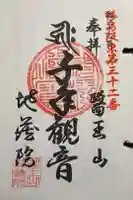 猿島阪東第三十二番
奉拝
醫王山
子安観音
地蔵院